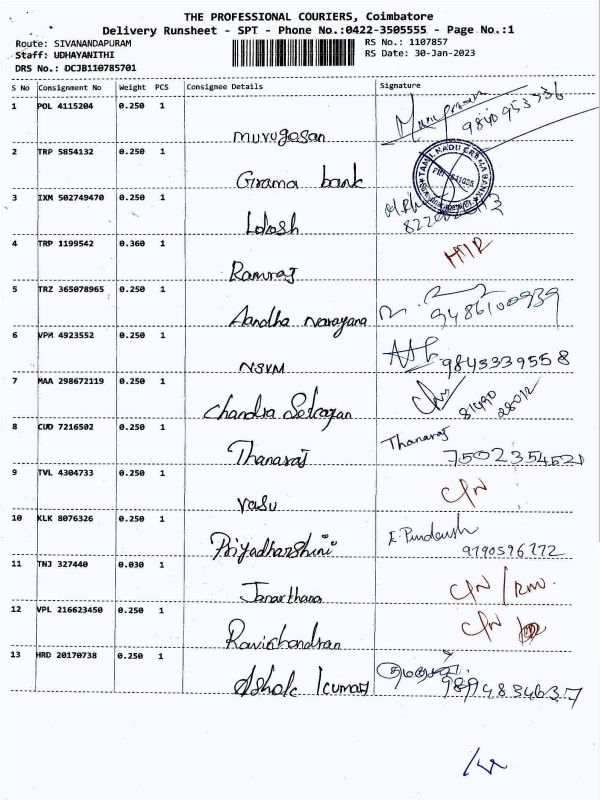 THE PROFESSIONAL COURIERS, Coimbatore
Delivery Runsheet - SPT - Phone No.:0422-3505555 - Page No.:1
Route: SIVANANDAPURAM
Staff: UDHAYANITHI
DRS No.: DCJB110785701
RS No.: 1107857
RS Date: 30-Jan-2023
S No Consignment No Weight PCS Consignee Details Signature
1 POL 4115204 0.250 1 murugesan 9840953336
2 TRP 5854132 0.250 1 Grama bank
3 IXM 502749470 0.250 1 Lokesh
4 TRP 1199542 0.360 1 Ramraj
5 TRZ 365078965 0.250 1 Aandha narayana 9486100939
6 VPM 4923552 0.250 1 NSVM 9843339558
7 MAA 298672119 0.250 1 Chandra 81490 28012
8 CUD 7216502 0.250 1 Thanaraj Thanaraj 7502354521
9 TVL 4304733 0.250 1 vasu C/N
10 KLK 8076326 0.250 1 Priyadharshini 9790576772
11 TNJ 327440 0.030 1 Janarthana C/N
12 VPL 216623450 0.250 1 Ravichandran C/N
13 HRD 20170738 0.250 1 Ashok kumar 9894834637